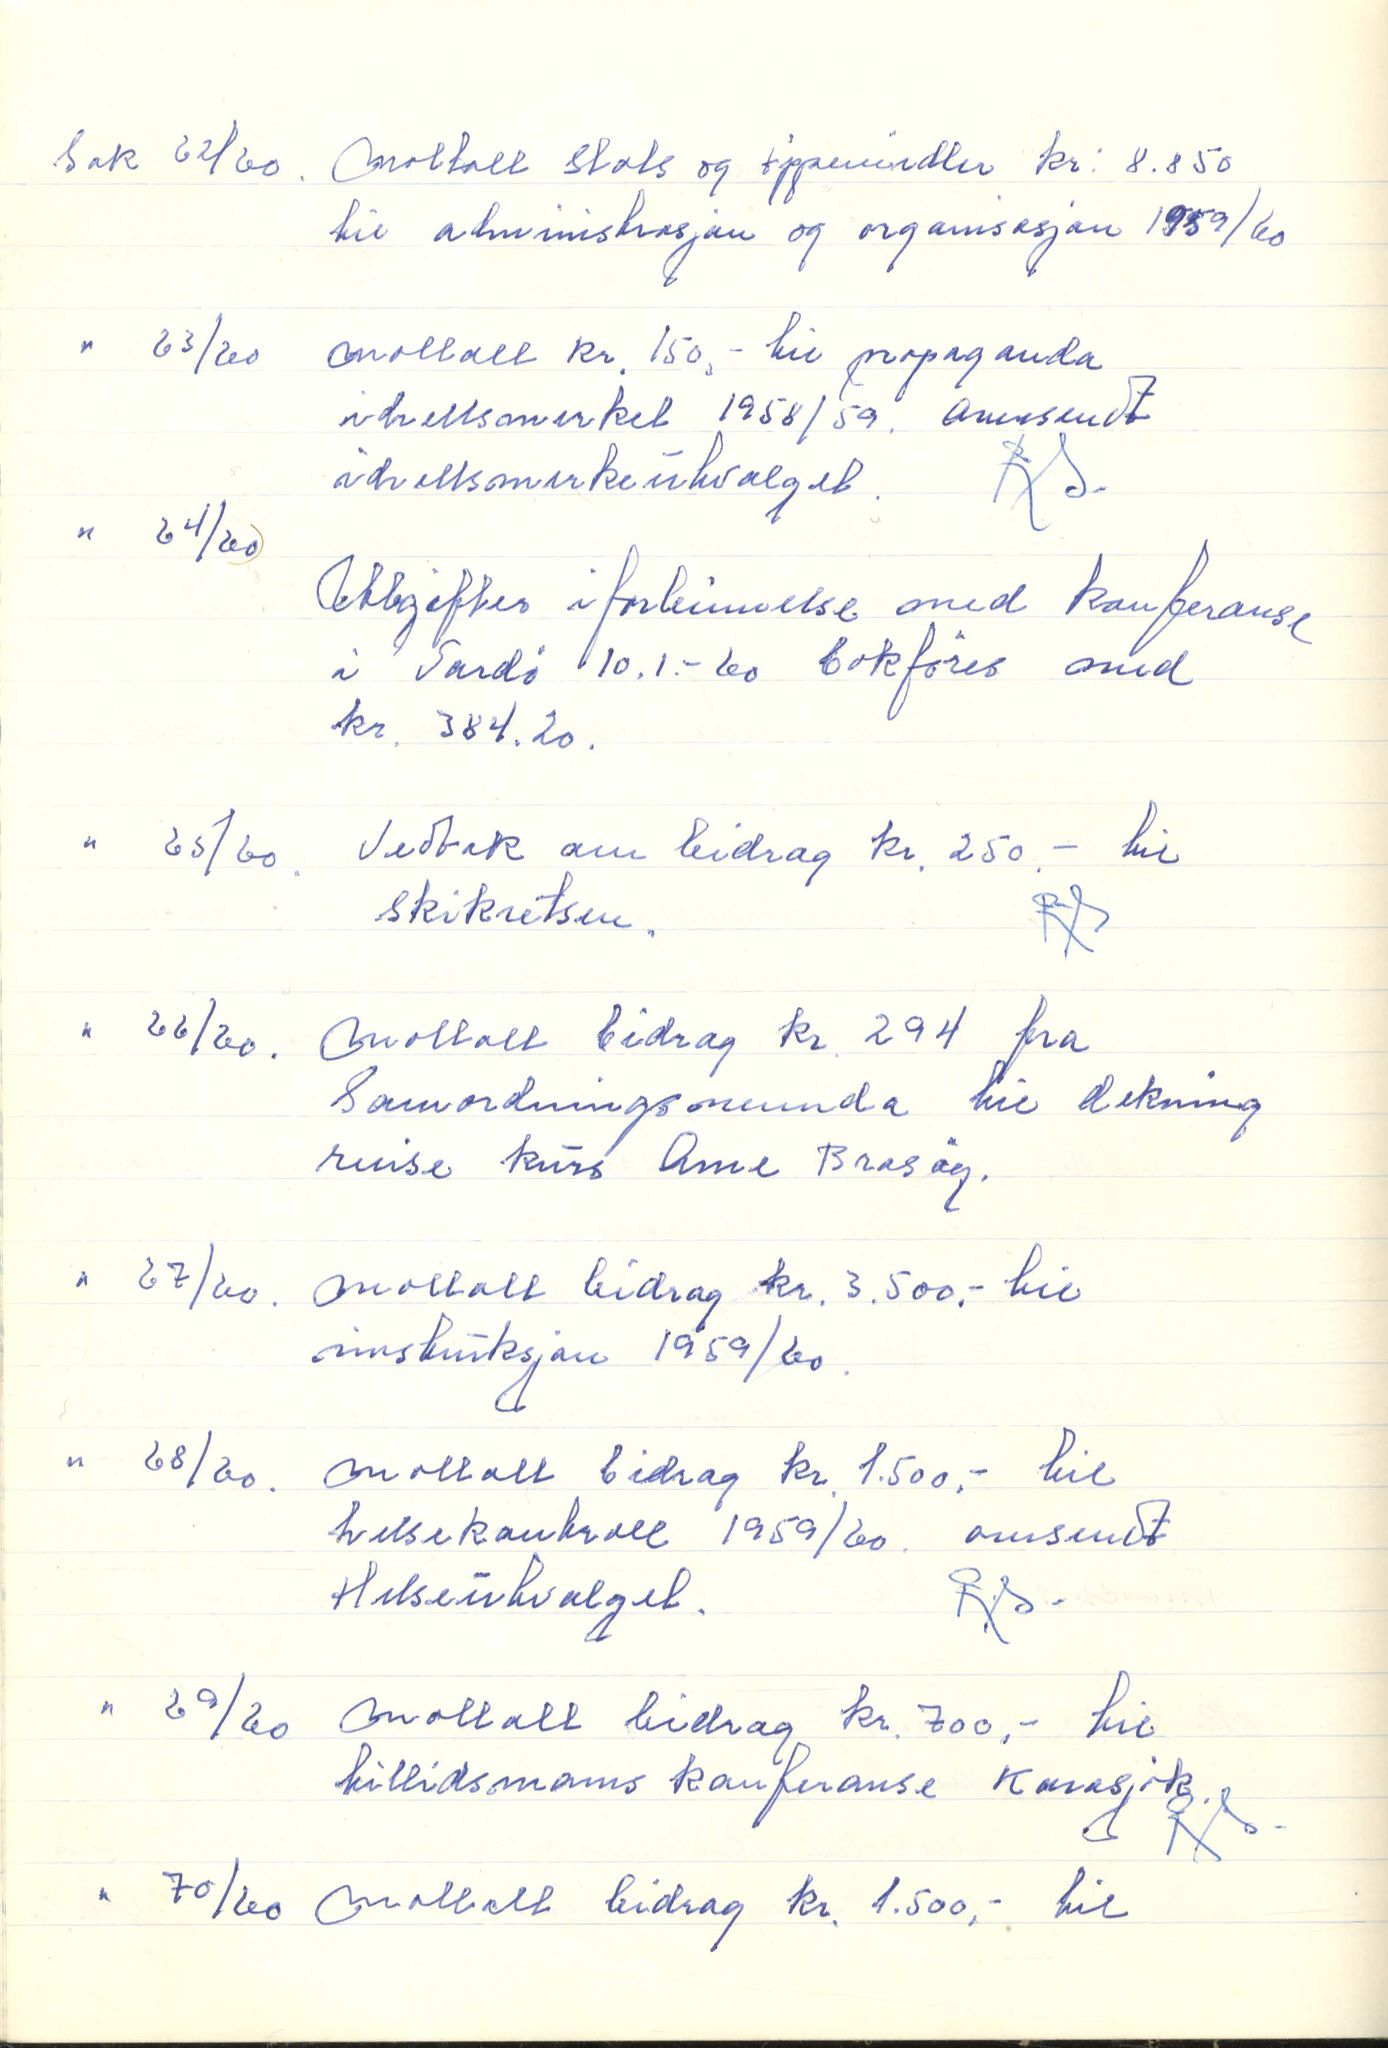 Sak 62/60. Mottatt stats og tippemidler kr: 8.850
til administrasjon og organisasjon 1959/60
" 63/60 Mottatt kr. 150,- til propaganda
idrettsmerket 1958/59. Oversendt
idrettsmerkeutvalget. RS.
" 64/60
Utgifter i forbinnelse med konferanse
i Vardö 10.1.-60 bokföres med
kr. 384.20.
" 65/60. Vedtak om bidrag kr. 250.- til
skikretsen. RS
" 66/60. Mottatt bidrag kr. 294 fra
Samordningsnemnda til dekning
reise kurs Arne Brasög.
" 67/60. Mottatt bidrag kr. 3.500,- til
instruksjon 1959/60.
" 68/60. Mottatt bidrag kr. 1.500,- til
helsekontroll 1959/60. Oversendt
Helseutvalget. RS.
" 69/60 Mottatt bidrag kr. 700,- til
tillidsmanns konferanse Karasjok.
RS.
" 70/60 Mottatt bidrag kr. 1.500,- til